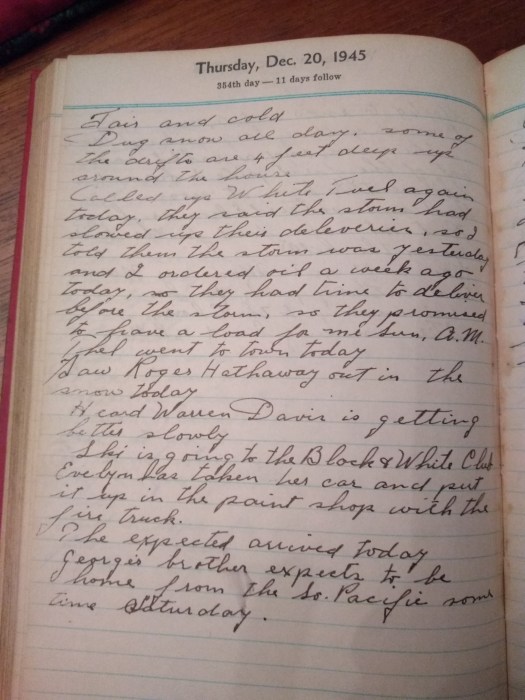 Thursday, Dec. 20, 1945
354th day — 11 days follow
Fair and cold
Dug snow all day. some of
the drifts are 4 feet deep up
around the house
Called up White Fuel again
today. they said the storm had
slowed up their deleveries, so I
told them the storm was yesterday
and I ordered oil a week ago
today, so they had time to deliver
before the storm, so they promised
to have a load for me Sun, A.M.
Ethel went to town today
Saw Roger Hathaway out in the
snow today
Heard Warren Davis is getting
better slowly
Ski is going to the Black & White Club
Evelyn has taken her car and put
it up in the paint shop with the
fire truck.
The expected arrived today
Georges brother expects to be
home from the So. Pacific some
time Saturday.